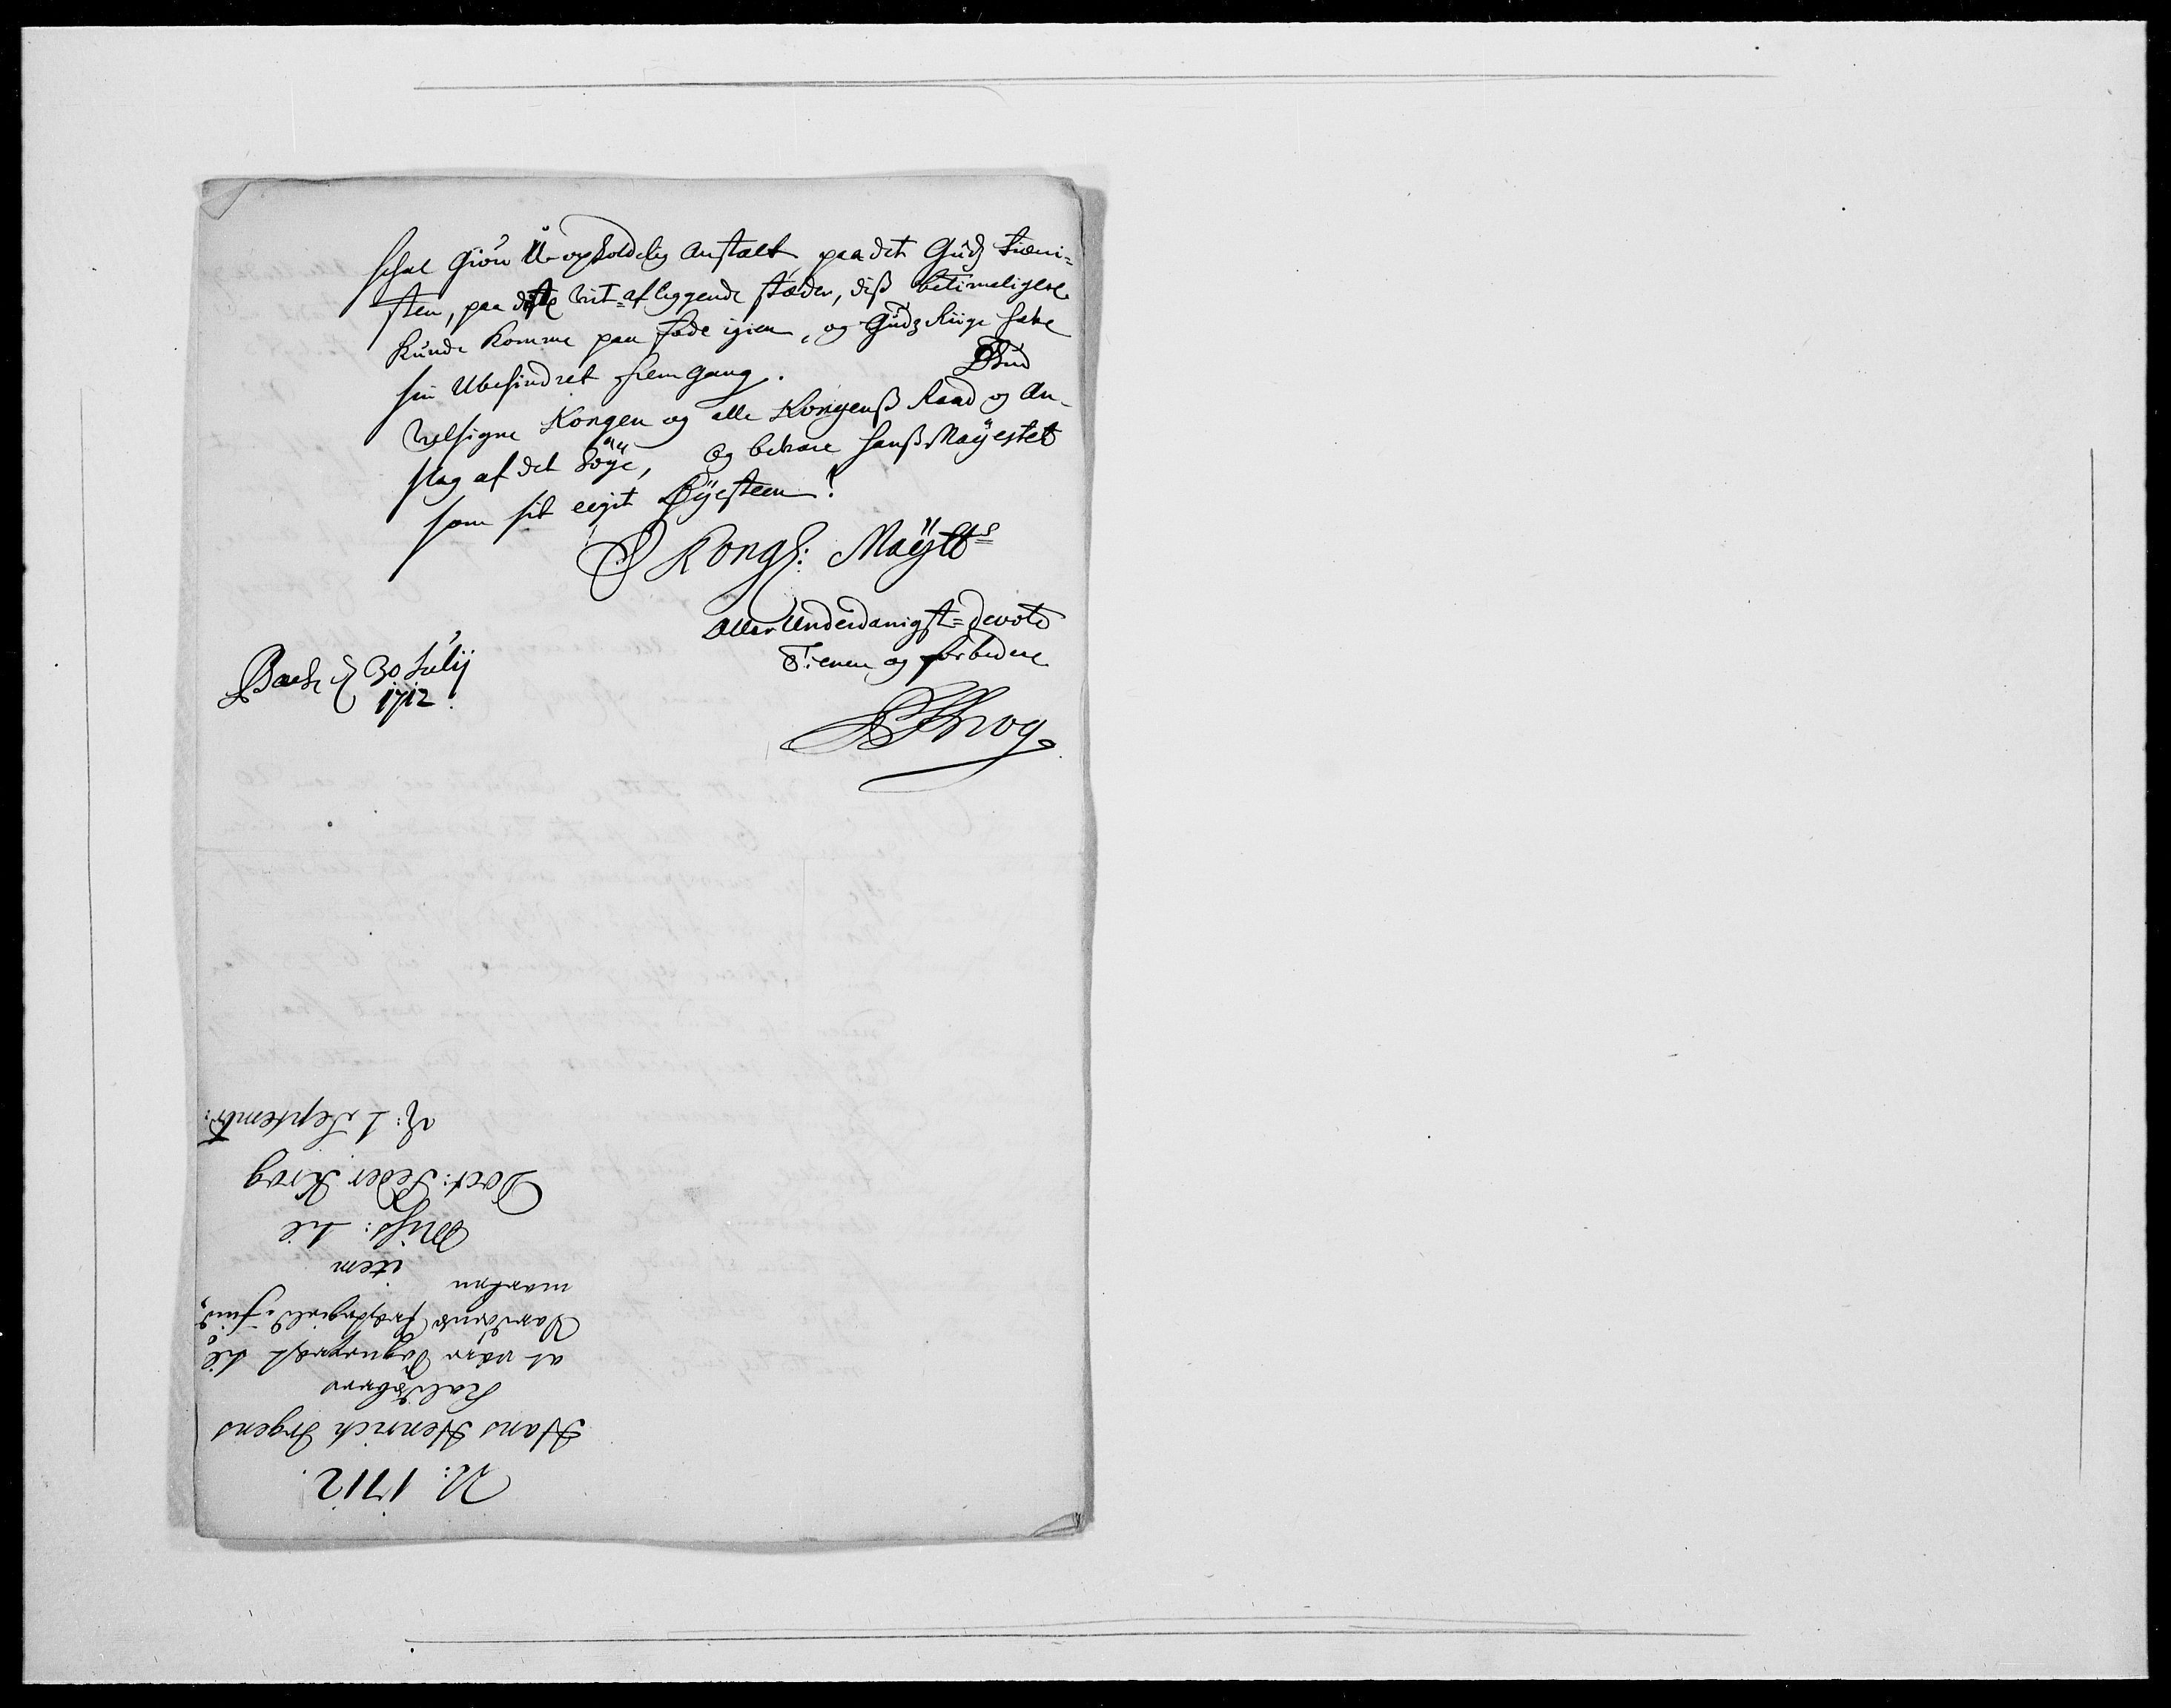 schal Giöre U-opholdelig Anstalt paa det Gudz tieni-
sten, paa diste vit-afliggende stæder, diss betimeligere
kunde komme paa fode igien, og Gudz Riige have
sin Ubehindret fremgang. Gud
velsigne Kongen og alle Kongenss Raad og An-
slag af det Höÿe, og bevare hanss Maÿestet
som sit eegit Øÿesteen!
Kongl: Maÿtts
Aller Underdanigst-devote
Tienere og forbedere
PKrog
Bach d 30 Julij
1712.
N: 1712.
Hans Henrich Irgens
Kaldsbrev
at være Sogneprest til
Præstegield i find-
marken
item
Miss: til
Doct: Peder Krog
d: 1 Septembr: